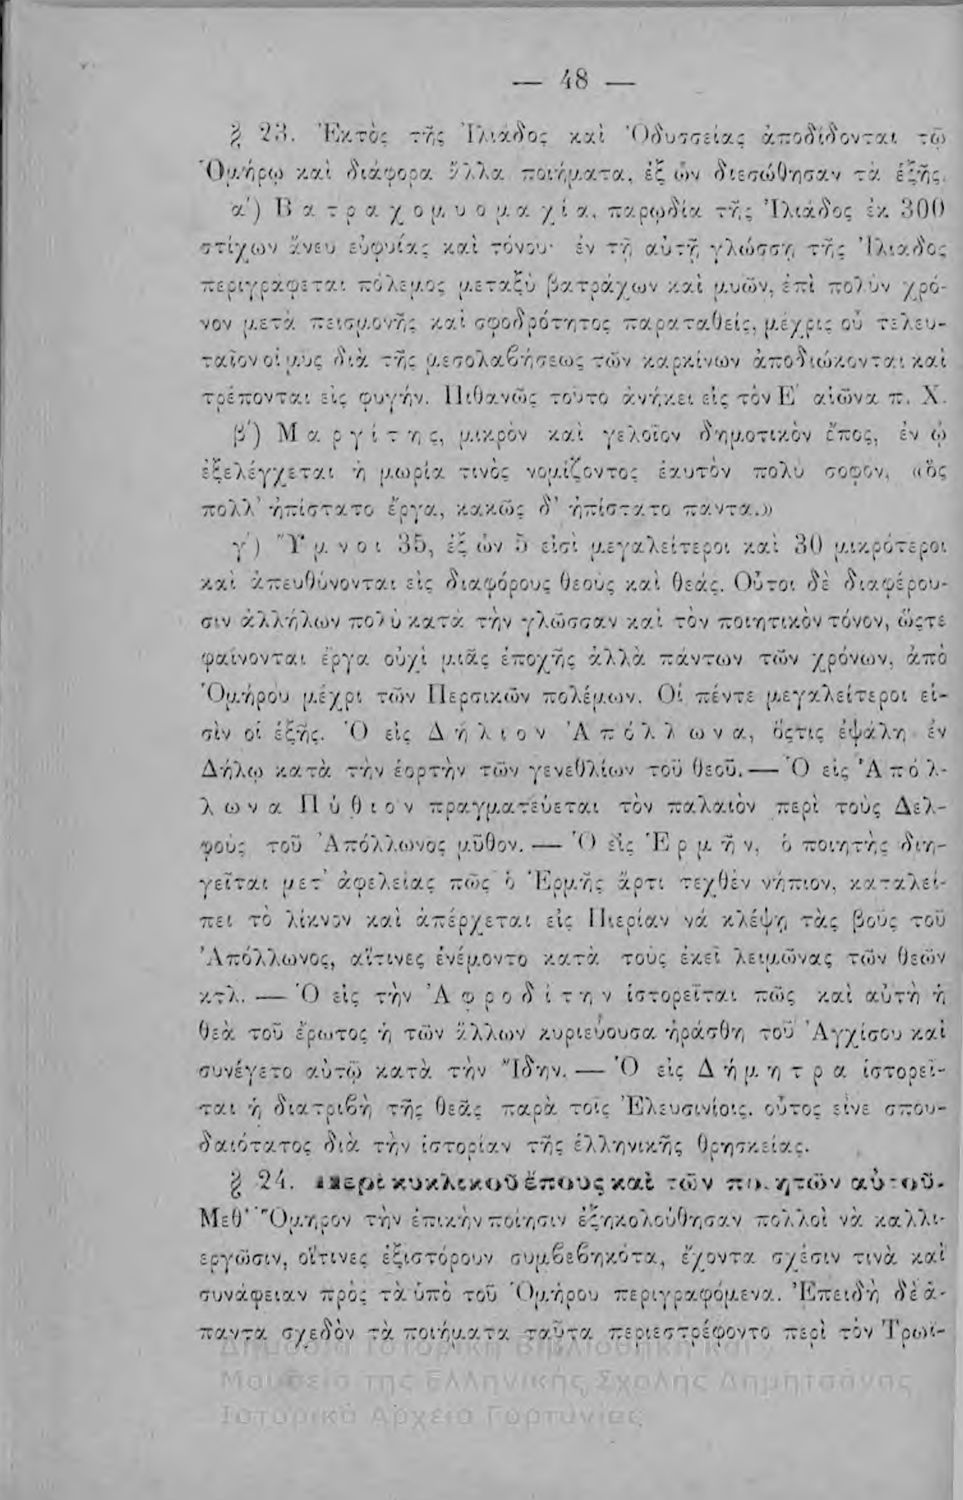 — 48 —
§ 23. Ἐκτὸς τῆς Ἰλιάδος καὶ Ὀδυσσείας ἀποδίδονται τῷ
Ὁμήρῳ καὶ διάφορα ἄλλα ποιήματα, ἐξ ὧν διεσώθησαν τὰ ἑξῆς.
α΄) Βατραχομυομαχία, παρῳδία τῆς Ἰλιάδος ἐκ 300
στίχων ἄνευ εὐφυίας καὶ τόνου· ἐν τῇ αὐτῇ γλώσσῃ τῆς Ἰλιάδος
περιγράφεται πόλεμος μεταξὺ βατράχων καὶ μυῶν, ἐπὶ πολὺν χρό-
νον μετὰ πεισμονῆς καὶ σφοδρότητος παραταθείς, μέχρις οὗ τελευ-
ταῖον οἱ μῦς διὰ τῆς μεσολαβήσεως τῶν καρκίνων ἀποδιώκονται καὶ
τρέπονται εἰς φυγήν. Πιθανῶς τοῦτο ἀνήκει εἰς τὸν Ε΄ αἰῶνα π. Χ.
β΄) Μαργίτης, μικρὸν καὶ γελοῖον δημοτικὸν ἔπος, ἐν ᾧ
ἐξελέγχεται ἡ μωρία τινὸς νομίζοντος ἑαυτὸν πολὺ σοφόν, «ὃς
πολλ' ἠπίστατο ἔργα, κακῶς δ' ἠπίστατο πάντα.»
γ΄) Ὕμνοι 35, ἐξ ὧν 5 εἰσὶ μεγαλείτεροι καὶ 30 μικρότεροι
καὶ ἀπευθύνονται εἰς διαφόρους θεοὺς καὶ θεάς. Οὗτοι δὲ διαφέρου-
σιν ἀλλήλων πολὺ κατὰ τὴν γλῶσσαν καὶ τὸν ποιητικὸν τόνον, ὥςτε
φαίνονται ἔργα οὐχὶ μιᾶς ἐποχῆς ἀλλὰ πάντων τῶν χρόνων, ἀπὸ
Ὁμήρου μέχρι τῶν Περσικῶν πολέμων. Οἱ πέντε μεγαλείτεροι εἰ-
σὶν οἱ ἑξῆς. Ὁ εἰς Δήλιον Ἀπόλλωνα, ὅςτις ἐψάλη ἐν
Δήλῳ κατὰ τὴν ἑορτὴν τῶν γενεθλίων τοῦ θεοῦ. — Ὁ εἰς Ἀπόλ-
λωνα Πύθιον πραγματεύεται τὸν παλαιὸν περὶ τοὺς Δελ-
φοὺς τοῦ Ἀπόλλωνος μῦθον. — Ὁ εἰς Ἑρμῆν, ὁ ποιητὴς διη-
γεῖται μετ' ἀφελείας πῶς ὁ Ἑρμῆς ἄρτι τεχθὲν νήπιον, καταλεί-
πει τὸ λίκνον καὶ ἀπέρχεται εἰς Πιερίαν νά κλέψῃ τὰς βοῦς τοῦ
Ἀπόλλωνος, αἵτινες ἐνέμοντο κατὰ τοὺς ἐκεῖ λειμῶνας τῶν θεῶν
κτλ. — Ὁ εἰς τὴν Ἀφροδίτην ἱστορεῖται πῶς καὶ αὐτὴ ἡ
θεὰ τοῦ ἔρωτος ἡ τῶν ἄλλων κυριεύουσα ἠράσθη τοῦ Ἀγχίσου καὶ
συνέγετο αὐτῷ κατὰ τὴν Ἴδην. — Ὁ εἰς Δήμητρα ἱστορεῖ-
ται ἡ διατριβὴ τῆς θεᾶς παρὰ τοῖς Ἐλευσινίοις. οὗτος εἶνε σπου-
δαιότατος διὰ τὴν ἱστορίαν τῆς ἑλληνικῆς θρησκείας.
§ 24. Περὶ κυκλικοῦ ἔπους καὶ τῶν ποιητῶν αὐτοῦ.
Μεθ' Ὅμηρον τὴν ἐπικὴν ποίησιν ἐξηκολούθησαν πολλοὶ νὰ καλλι-
εργῶσιν, οἵτινες ἐξιστόρουν συμβεβηκότα, ἔχοντα σχέσιν τινὰ καὶ
συνάφειαν πρὸς τὰ ὑπὸ τοῦ Ὁμήρου περιγραφόμενα. Ἐπειδὴ δὲ ἅ-
παντα σχεδὸν τὰ ποιήματα ταῦτα περιεστρέφοντο περὶ τὸν Τρωϊ-
Δημόσια Ιστορική Βιβλιοθήκη και
Μουσείο της Ελληνικής Σχολής Δημητσάνας
Ιστορικό Αρχείο Γορτυνίας